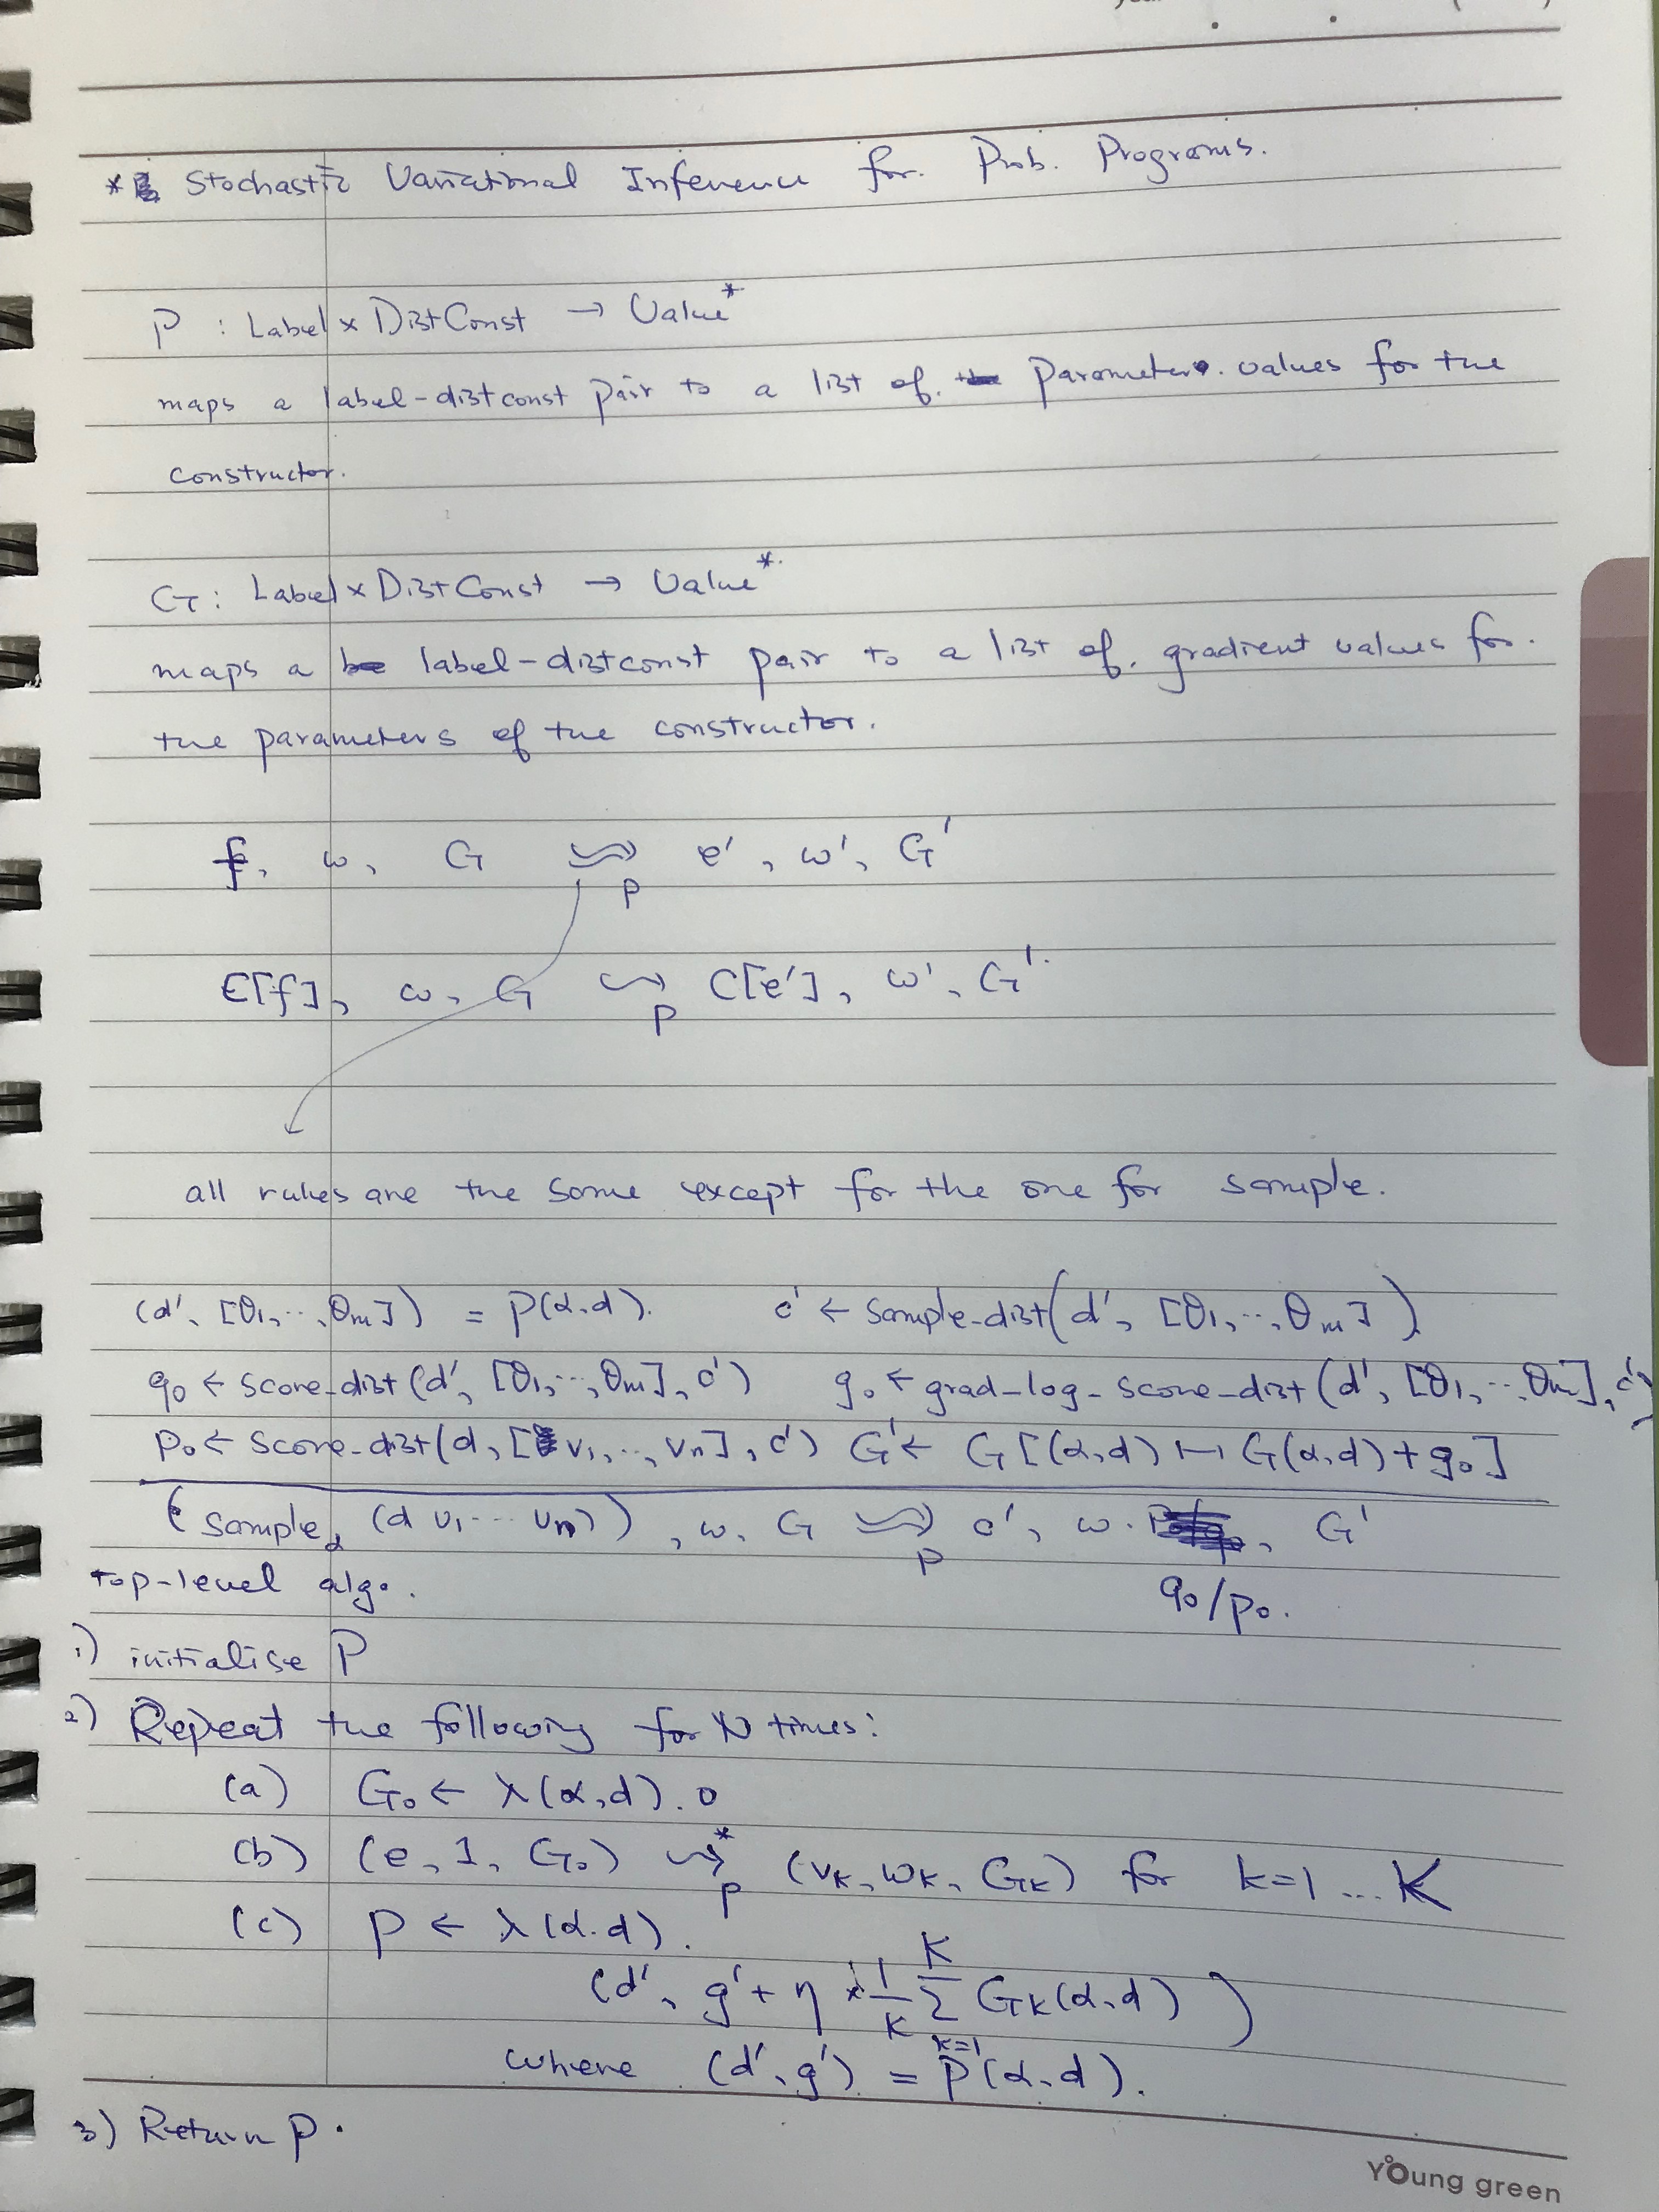 * Stochastic Variational Inference for Prob. Programs.
P : Label × DistConst → Value*
maps a label-distconst pair to a list of parameter values for the
constructor.
G : Label × DistConst → Value*.
maps a label-distconst pair to a list of gradient values for
the parameters of the constructor.
f, ω, G ⇝_P e', ω', G'
E[f], ω, G ↝_P C[e'], ω', G'
all rules are the same except for the one for sample.
(d', [θ1, ..., θm]) = P(α, d). c' ← sample-dist(d', [θ1, ..., θm])
q0 ← score-dist(d', [θ1, ..., θm], c') g0 ← grad-log-score-dist(d', [θ1, ..., θm], c')
p0 ← score-dist(d, [v1, .., vn], c') G' ← G[(α,d) ↦ G(α,d) + g0]
(sample_α (d v1 ... vn)), ω, G ⇝_P c', ω ·, G'
q0/p0.
top-level algo.
1) initialise P
2) Repeat the following for N times:
(a) G0 ← λ(α,d). 0
(b) (e, 1, G0) ↝*_P (vk, ωk, Gk) for k=1 ... K
(c) P ← λ(α.d).
(d', g' + η × 1/K Σ_{k=1}^{K} Gk(α,d))
where (d', g') = P(α,d).
3) Return P.
Young green